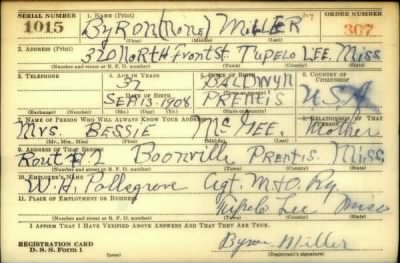 SERIAL NUMBER 1. NAME (Print) ORDER NUMBER
1015 ByRON (None) MillER 307
(First) (Middle) (Last)
2. ADDRESS (Print)
320 NoRTH Front St TupElo LEE, Miss
(Number and street or R. F. D. number) (Town) (County) (State)
3. TELEPHONE 4. AGE IN YEARS 5. PLACE OF BIRTH 6. COUNTRY OF CITIZENSHIP
32 BALDwyN
DATE OF BIRTH (Town or county)
SEP 13. 1908 PRENTIS U.S.A
(Exchange) (Number) (Mo.) (Day) (Yr.) (State or country)
7. NAME OF PERSON WHO WILL ALWAYS KNOW YOUR ADDRESS 8. RELATIONSHIP OF THAT PERSON
Mrs. BESSIE McGEE. Mother
(Mr., Mrs., Miss) (First) (Middle) (Last)
9. ADDRESS OF THAT PERSON
Rout # 2 Boonville PRENTIS. Miss
(Number and street or R. F. D. number) (Town) (County) (State)
10. EMPLOYER'S NAME
W. H. Pollegrove Agt. M+O. Ry.
11. PLACE OF EMPLOYMENT OR BUSINESS
Tupelo Lee Miss
(Number and street or R. F. D. number) (Town) (County) (State)
I AFFIRM THAT I HAVE VERIFIED ABOVE ANSWERS AND THAT THEY ARE TRUE.
REGISTRATION CARD
D. S. S. Form 1
Byron Miller
(Registrant's signature)